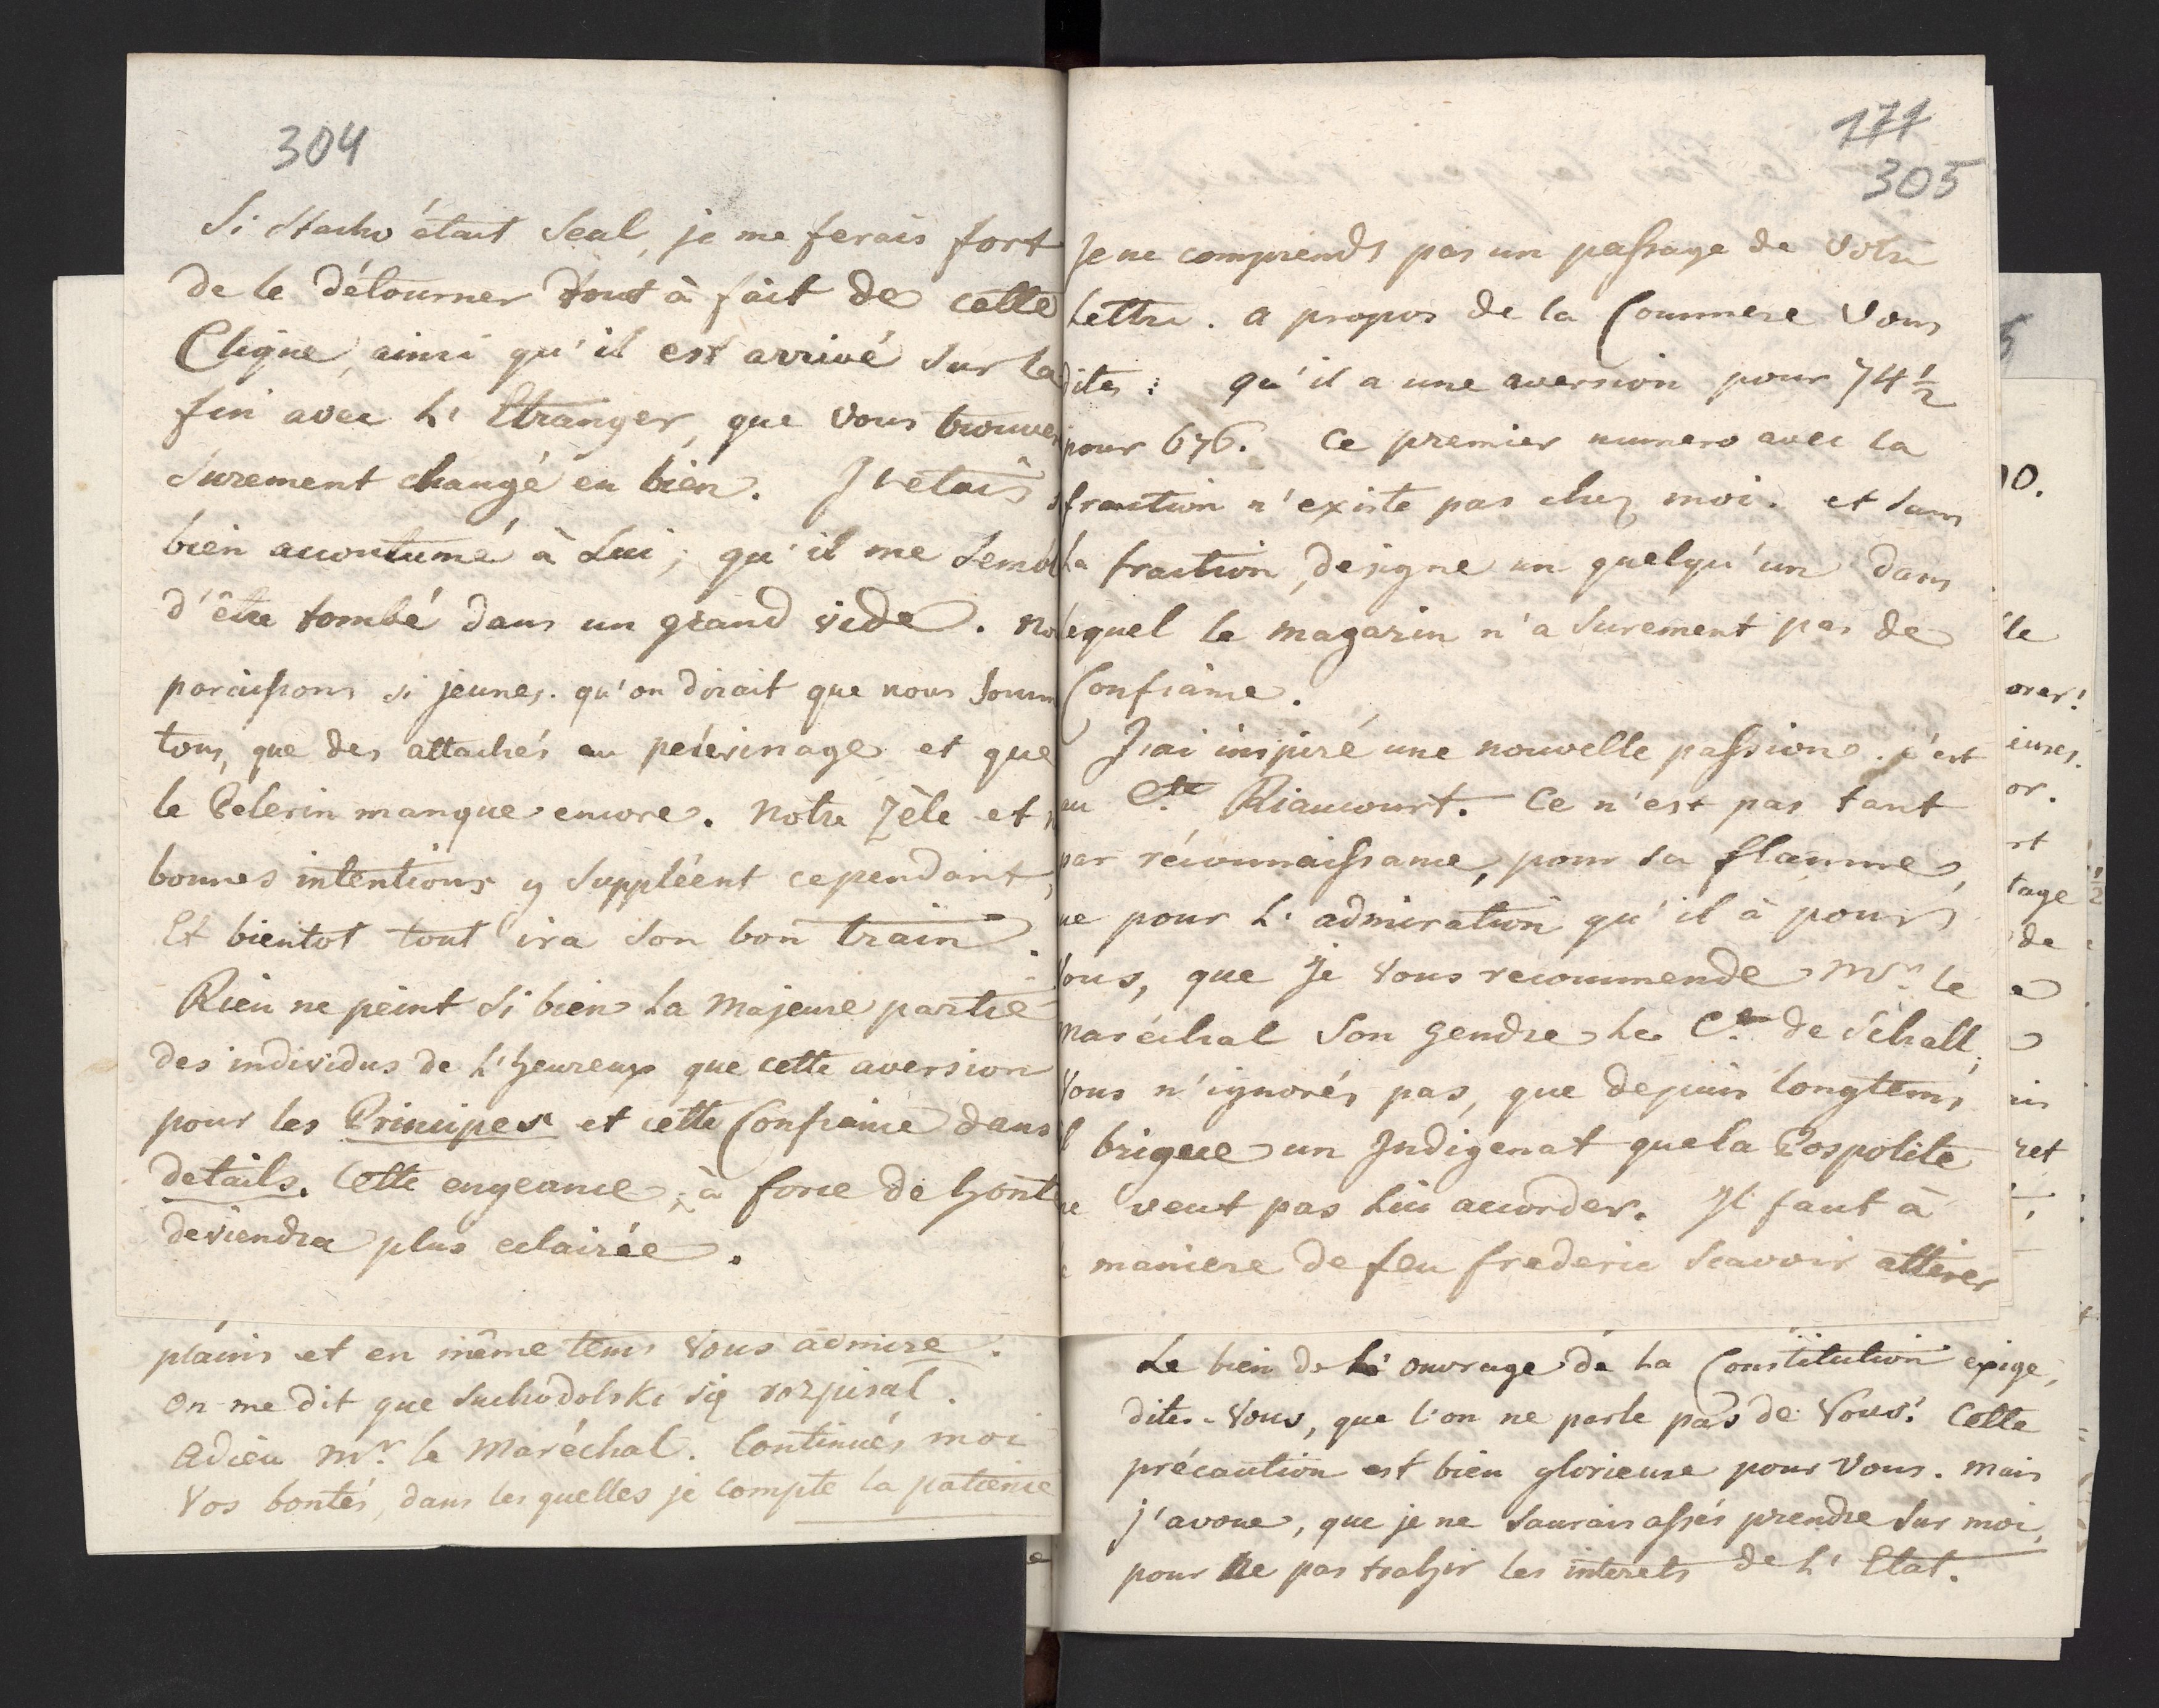 304
Si Stacho était Seul, je me ferais fort
de le détourner tout à fait de cette
Clique, ainsi qu'il est arrivé Sur la
fin avec L'Etranger, que vous trouver
Surement changé en bien. J'etais
bien accoutumé à Lui, qu'il me Sembl
d'être tombé dans un grand vide. No
paraissons si jeunes. qu'on dirait que nous Somm
tous, que des attachés au pelerinage et que
le Pelerin manque encore. Notre Zèle et
bonnes intentions y Suppléent cependant,
Et bientot tout ira Son bon train.
Rien ne peint Si bien La Majeure partie
des individus de L'heureux que cette aversion
pour les Principes et cette Confiance dans
details. Cette engeance, à force de hont
deviendra plus eclairée.
plains et en même tems Vous admire.
On me dit que Suchodolski się rozpisał.
Adieu Mr. le Maréchal. Continués moi
Vos bontés, dans les quelles je compte la patience
171
305
Je ne comprends pas un passage de Votre
Lettre. a propos de la Commere Vous
dites: qu'il a une aversion pour 74 1/2
pour 676. Ce premier numero avec la
fraction n'existe pas chez moi. et sans
La fraction, designe un quelqu'un dans
lequel le magazin n'a Surement pas de
Confiance.
J'ai inspiré une nouvelle passion. c'est
au Cte Riaucourt. Ce n'est pas tant
par réconnaissance, pour sa flamme,
ue pour L'admiration qu'il à pour
Vous, que Je Vous recommende Mr. le
Maréchal Son gendre Le Cte de Schall.
Vous n'ignorés pas, que depuis longtems
il brigue un Indigenat que la Pospolite
ne veut pas Lui accorder. Il faut à
maniere de feu frederic Scavoir attirer
Le bien de L'ouvrage de La Constitution exige,
dites-Vous, que l'on ne parle pas de Vous. Cette
précaution est bien glorieuse pour Vous. Mais
j'avoue, que je ne Saurais assés prendre Sur moi,
pour Ne pas trahir les interets de L'Etat.